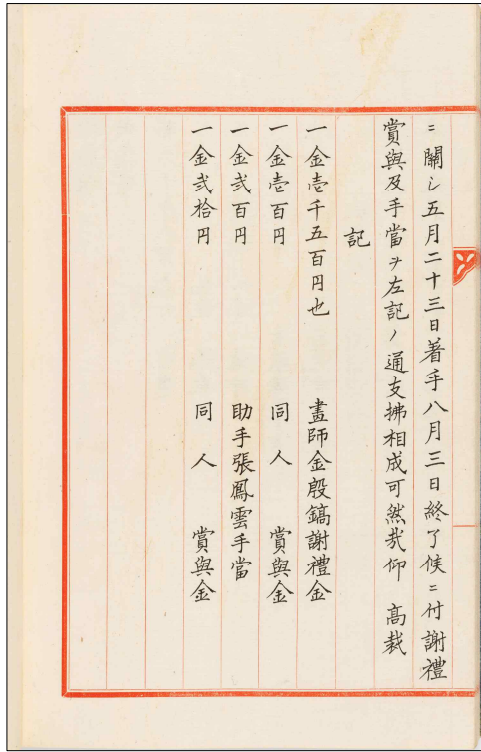 ニ關シ五月二十三日着手八月三日終了候ニ付謝禮
賞與及手當ヲ左記ノ通支拂相成可然哉仰 高裁
記
一金壱千五百円也 畫師金殷鎬謝禮金
一金壱百円 同人 賞與金
一金弐百円 助手張鳳雲手當
一金弐拾円 同人 賞與金